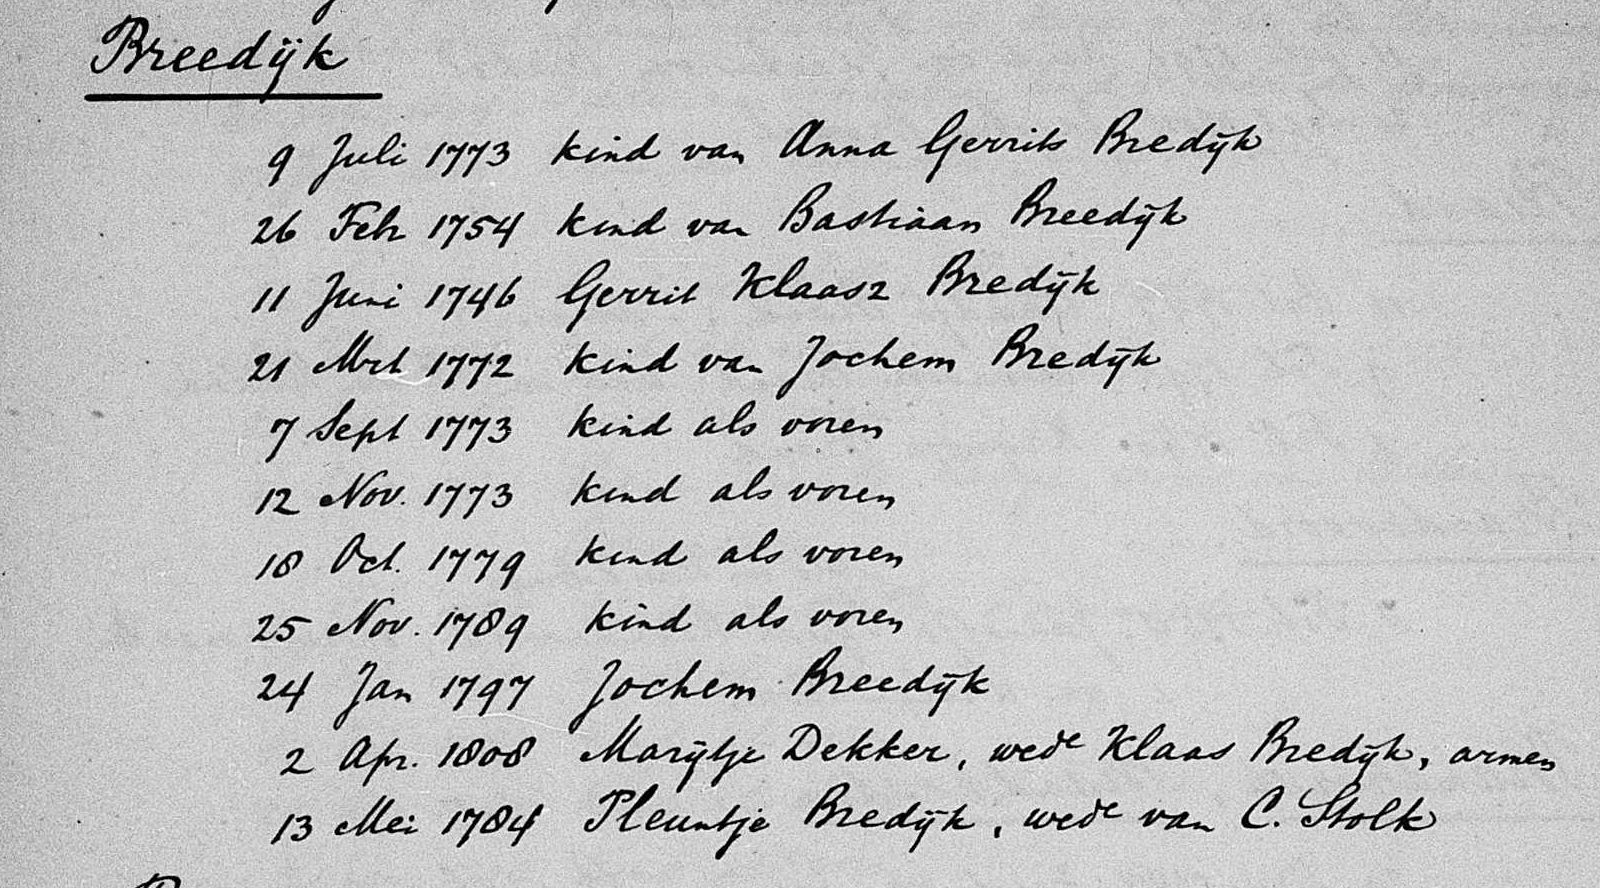 Breedijk
9 Juli 1773 kind van Anna Gerrits Bredijk
26 Febr 1754 kind van Bastiaan Breedijk
11 Juni 1746 Gerrit Klaasz Bredijk
21 Mrt 1772 kind van Jochem Bredijk
7 Sept 1773 kind als voren
12 Nov. 1773 kind als voren
18 Oct. 1779 kind als voren
25 Nov. 1789 kind als voren
24 Jan 1797 Jochem Breedijk
2 Apr. 1808 Marijtje Dekker, wede Klaas Bredijk, armen
13 Mei 1784 Pleuntje Bredijk, wede van C. Stolk